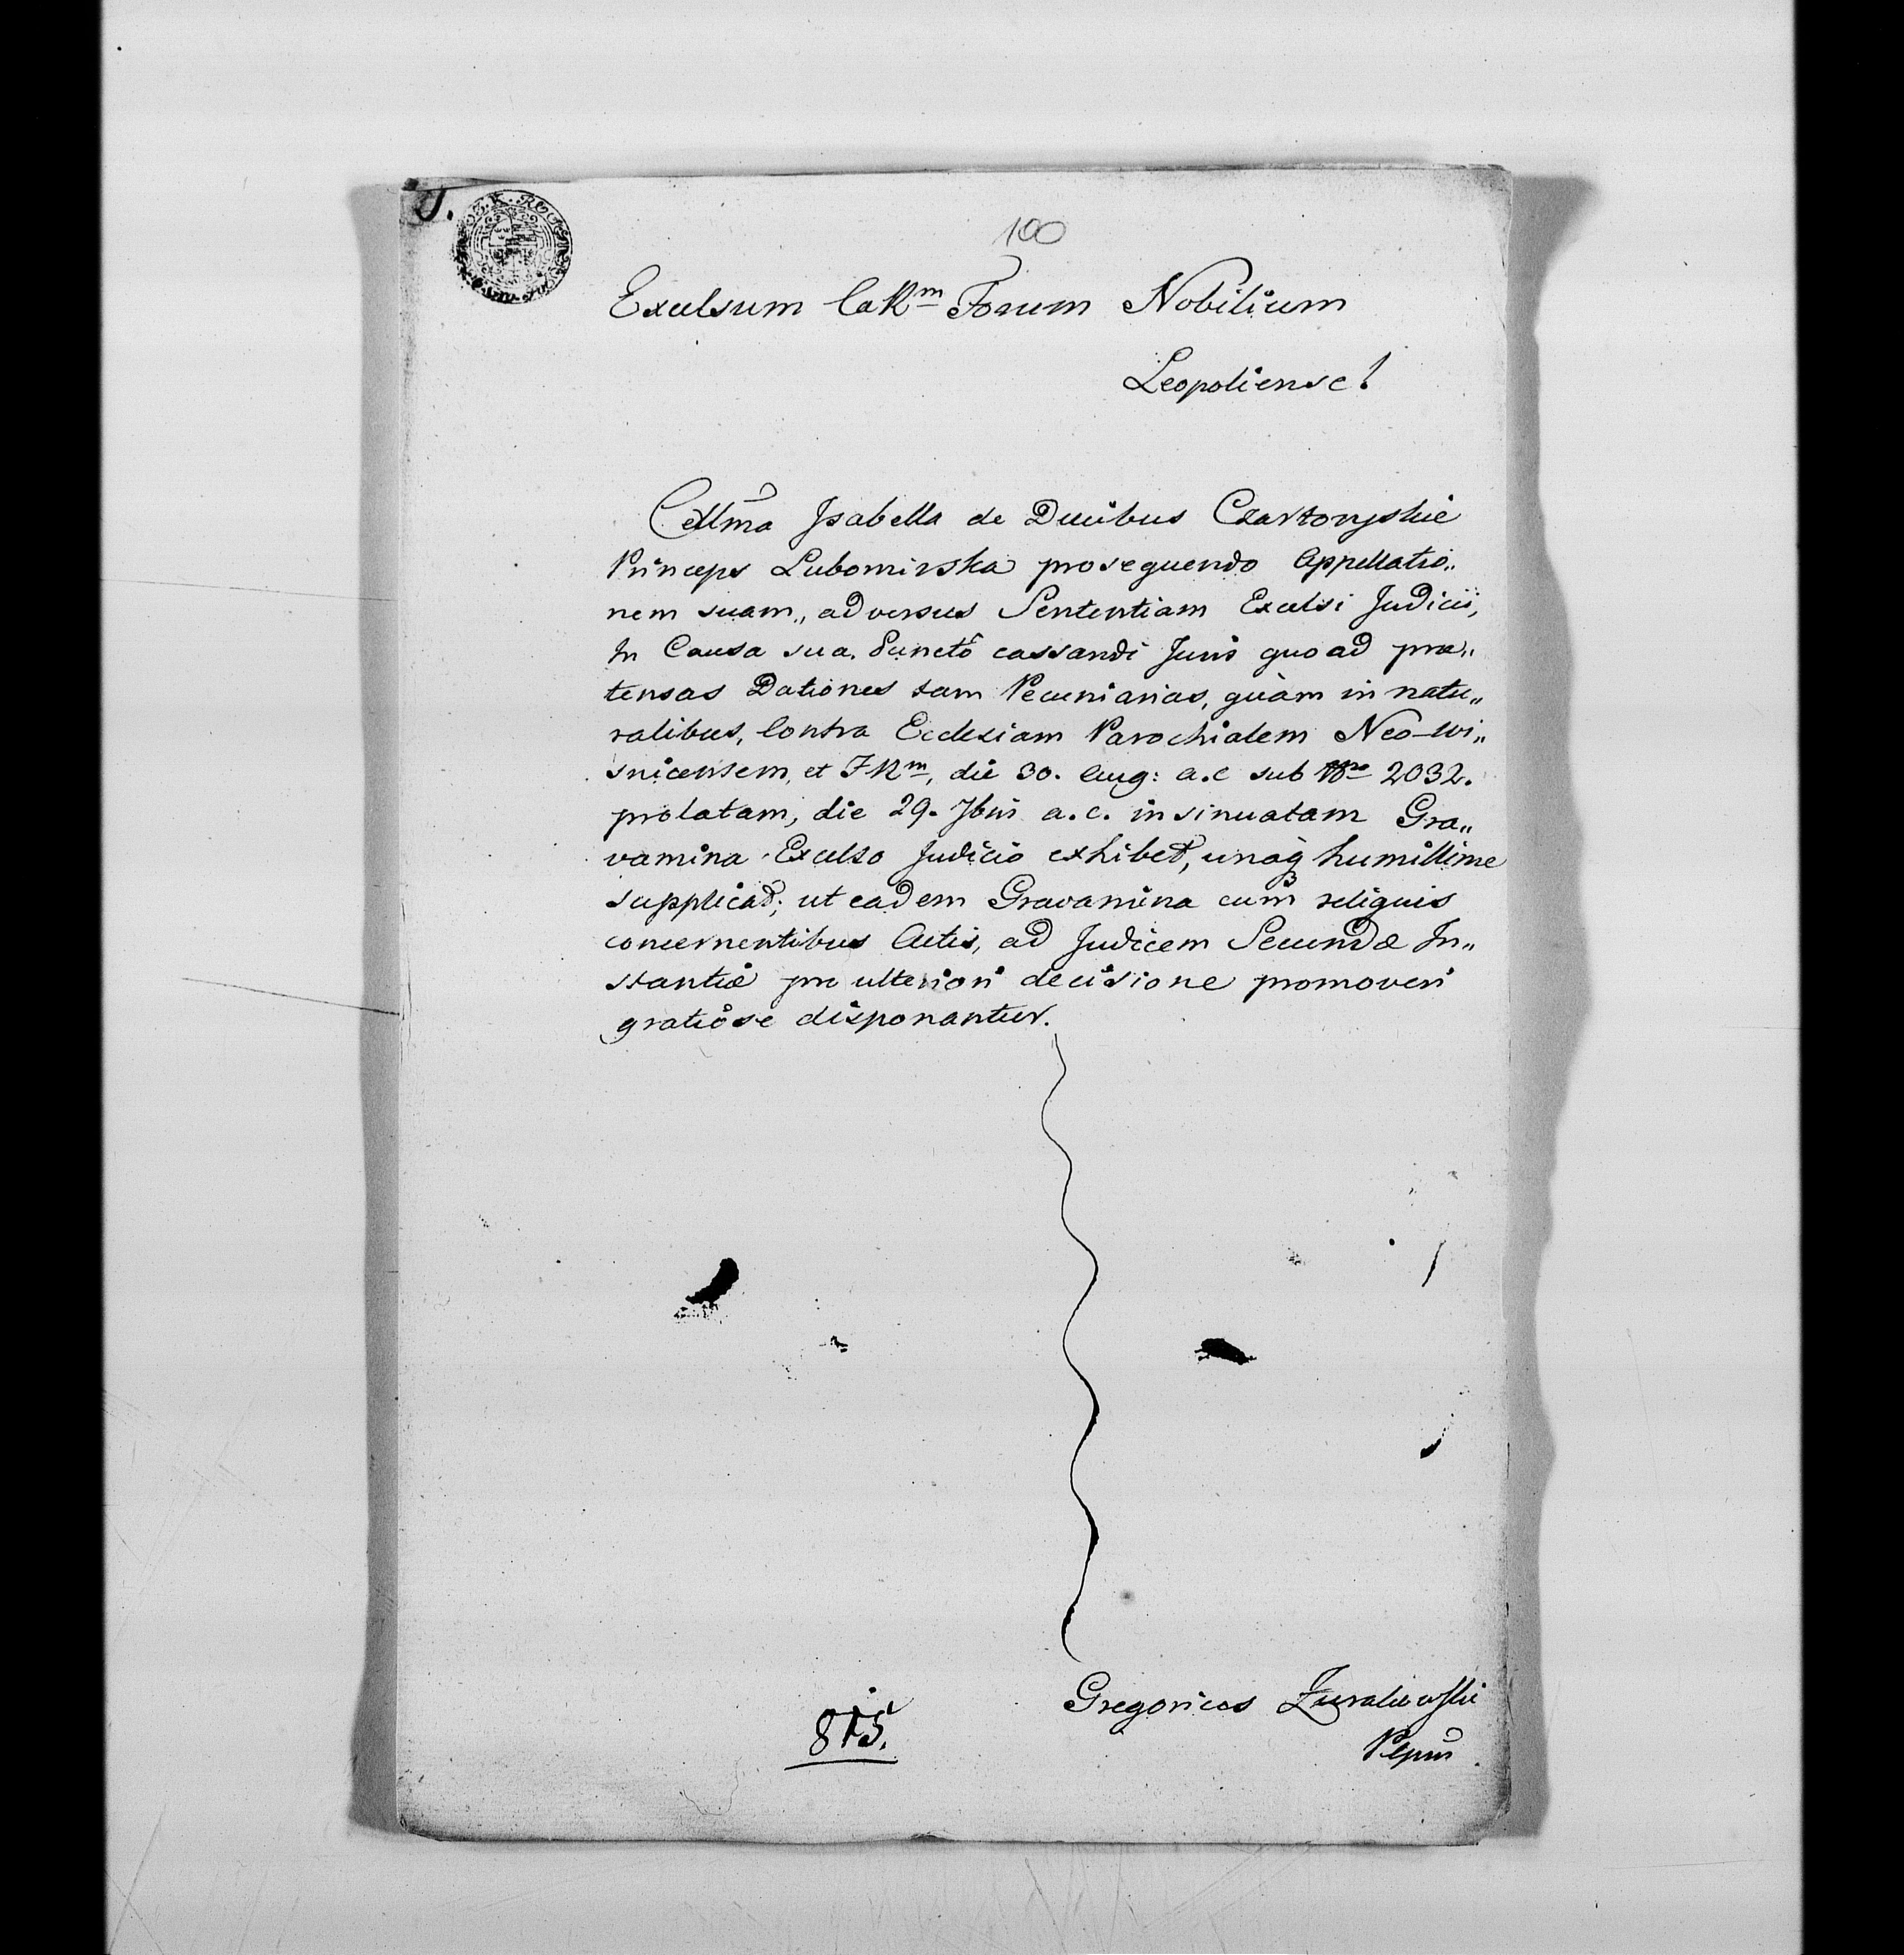 100
Excelsum CaRm Forum Nobilium
Leopoliense!
Cellma Isabella de Ducibus Czartoryskie
Princeps Lubomirska prosequendo Appellatio„
nem suam„ adversus Sententiam Excelsi Judicii,
In Causa sua. Puncto cassandi Juris quoad præ„
tensas Dationes tam Pecuniarias, quàm in natu„
ralibus, Contra Ecclesiam Parochialem Neo-Wi„
snicensem, et FRm, die 30. Aug: a.c sub Nro 2032.
prolatam, die 29. 7bris a.c. insinuatam Gra„
vamina Excelso Judicio exhibet, unaq humillime
supplicat; ut eadem Gravamina cum reliquis
concernentibus Actis, ad Judicem Secundæ In„
stantiæ pro ulteriori decisione promoveri
gratiose disponantur.
Gregorius Zurakowski
Plpm
815.